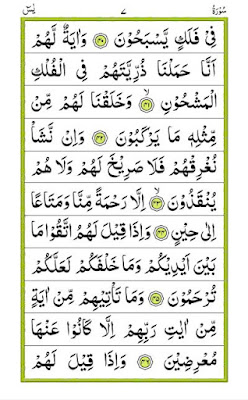 يٰسٓ ٧ سُوْرَةُ
فِيْ فَلَكٍ يَّسْبَحُوْنَ ﴿۴۰﴾ وَاٰيَةٌ لَّهُمْ
اَنَّا حَمَلْنَا ذُرِّيَّتَهُمْ فِي الْفُلْكِ
الْمَشْحُوْنِ ﴿۴۱﴾ وَخَلَقْنَا لَهُمْ مِّنْ
مِّثْلِهٖ مَا يَرْكَبُوْنَ ﴿۴۲﴾ وَاِنْ نَّشَاْ
نُغْرِقْهُمْ فَلَا صَرِيْخَ لَهُمْ وَلَا هُمْ
يُنْقَذُوْنَ ﴿۴۳﴾ اِلَّا رَحْمَةً مِّنَّا وَمَتَاعًا
اِلٰى حِيْنٍ ﴿۴۴﴾ وَاِذَا قِيْلَ لَهُمُ اتَّقُوْا مَا
بَيْنَ اَيْدِيْكُمْ وَمَا خَلْفَكُمْ لَعَلَّكُمْ
تُرْحَمُوْنَ ﴿۴۵﴾ وَمَا تَاْتِيْهِمْ مِّنْ اٰيَةٍ
مِّنْ اٰيٰتِ رَبِّهِمْ اِلَّا كَانُوْا عَنْهَا
مُعْرِضِيْنَ ﴿۴۶﴾ وَاِذَا قِيْلَ لَهُمْ